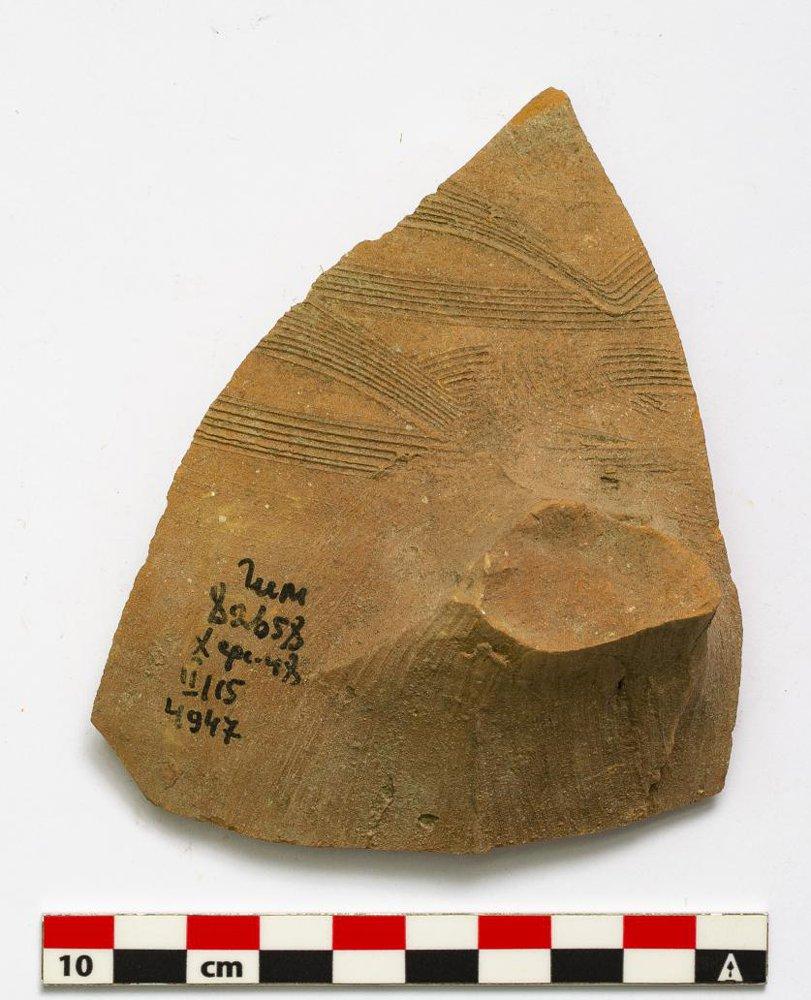 Гим
82658
Херс-48
II/15
4947
10 cm
A